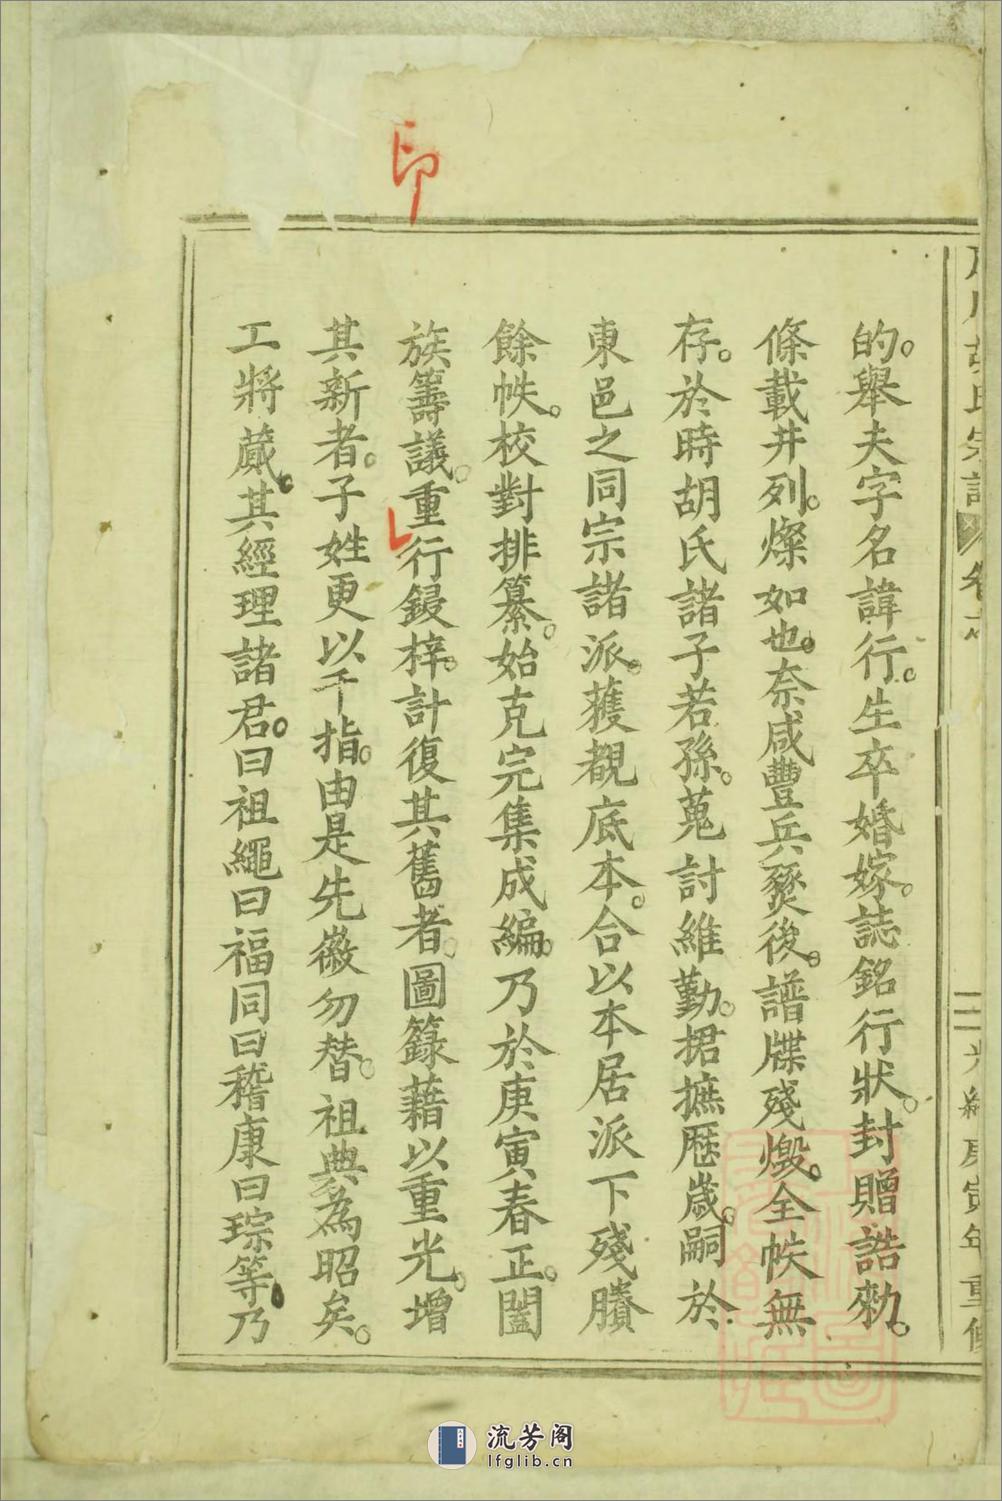 胡氏宗譜
光緒庚寅年重修
的。舉夫字名諱行。生卒婚嫁。誌銘行狀。封贈誥勅。
條載井列。燦如也。奈咸豐兵燹後。譜牒殘燬。全帙無
存。於時胡氏諸子若孫。蒐討維勤。捃摭歷歲。嗣於
東邑之同宗諸派。獲覩底本。合以本居派下殘賸
餘帙。校對排纂。始克完集成編。乃於庚寅春正。闔
族籌議。重行鋟梓。計復其舊者。圖籙藉以重光。增
其新者。子姓更以千指。由是先徽勿替。祖典為昭矣。
工將蕆。其經理諸君。曰祖繩曰福同曰稽康曰琮等。乃
印
流芳阁
lfglib.cn